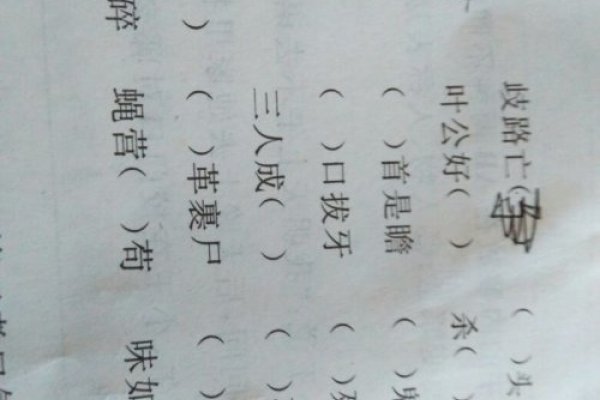 歧路亡( ) ( )头
叶公好( ) 杀(
( )首是瞻 ( )
( )口拔牙 ( )
三人成( ) ( )
) ( )革裹尸 ( )
碎 蝇营( )苟 味如